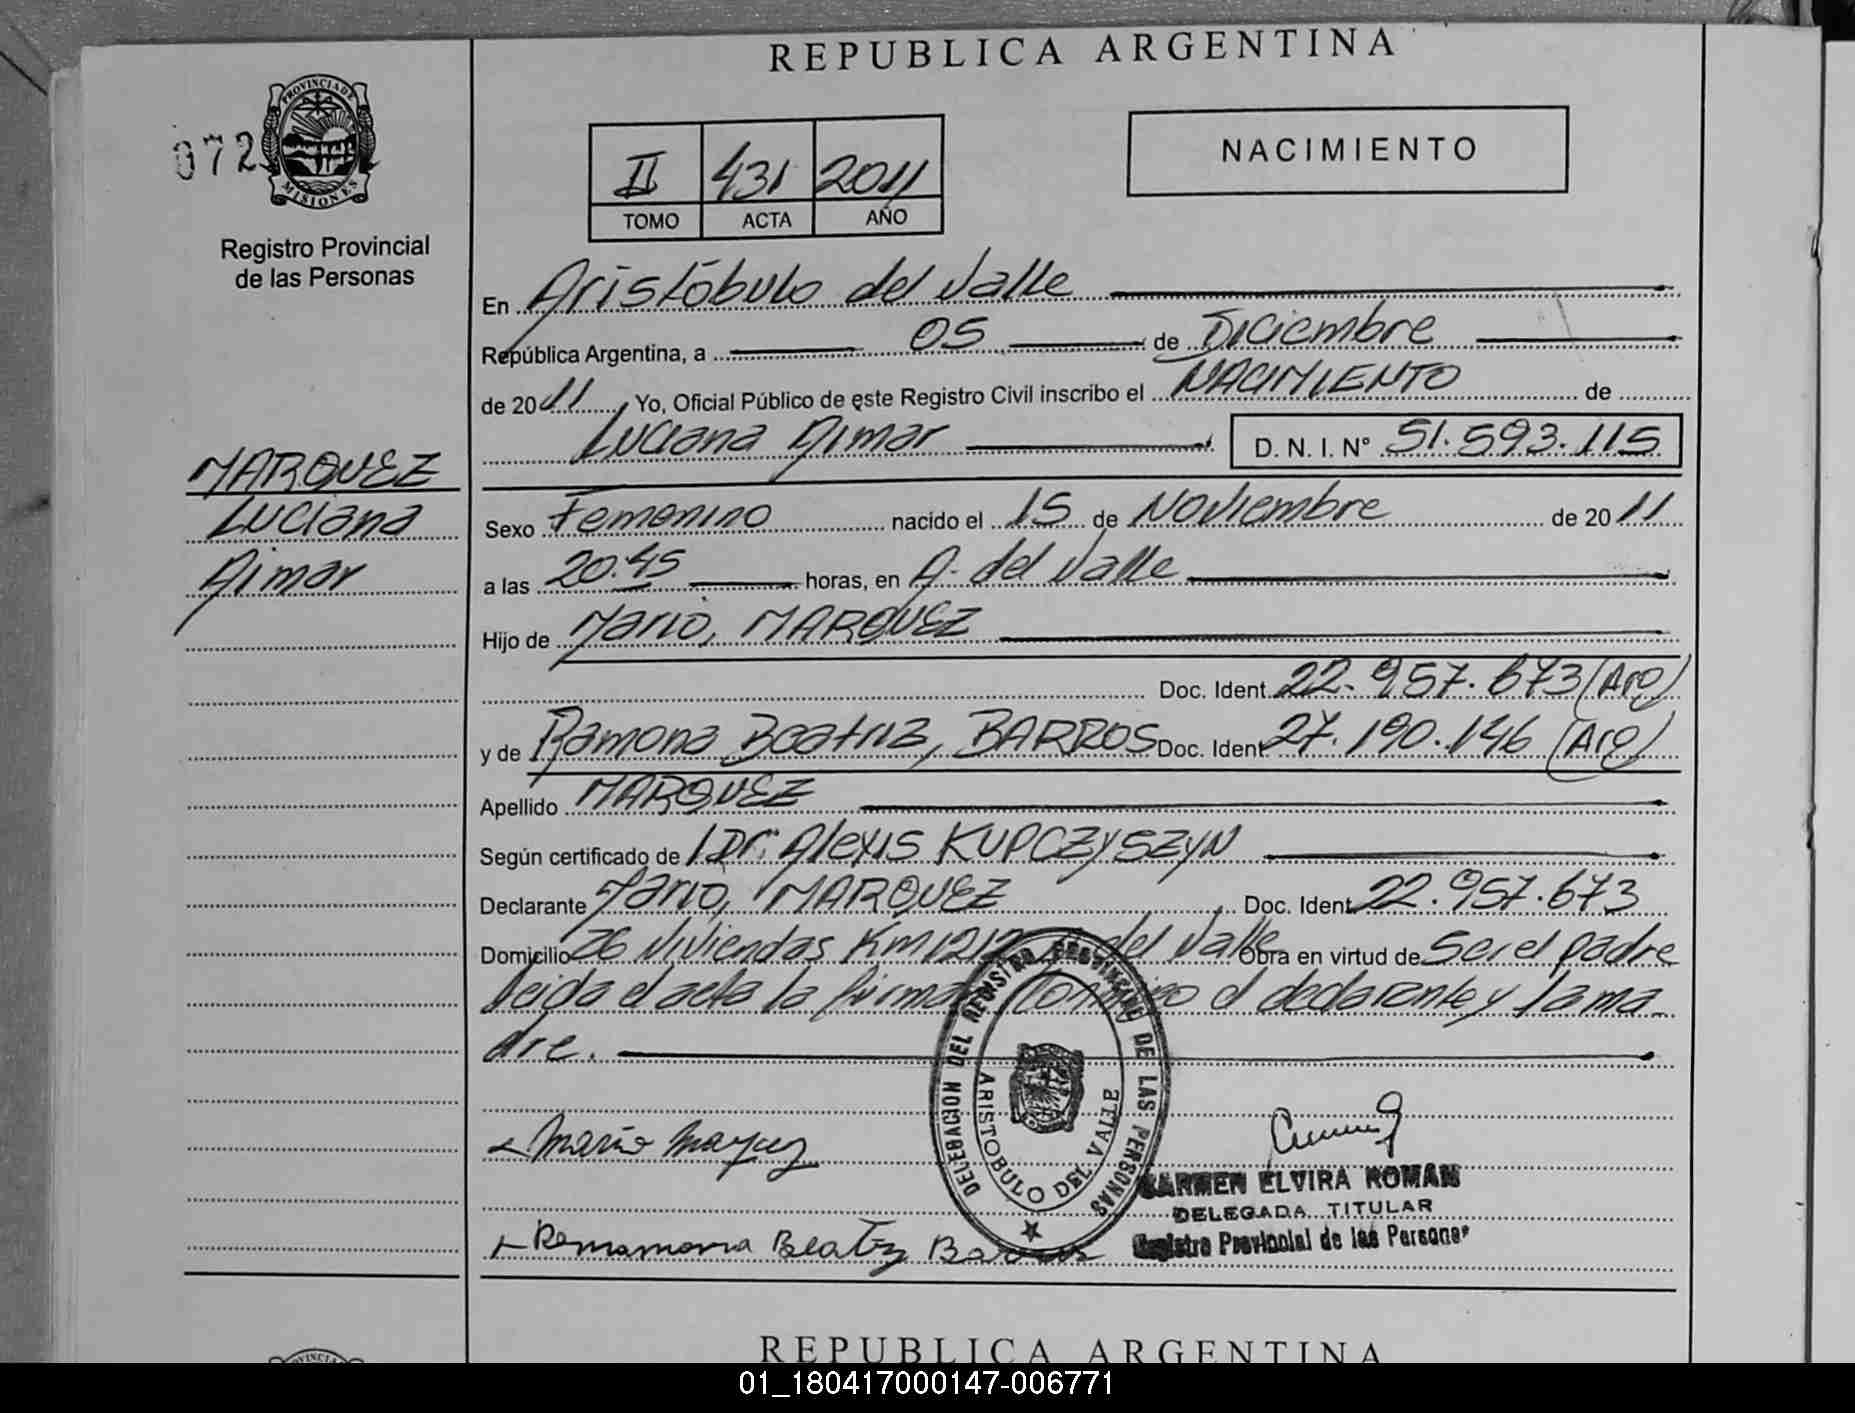 REPUBLICA ARGENTINA
072
PROVINCIA DE
MISIONES
Registro Provincial
de las Personas
II 431 2011
TOMO ACTA AÑO
NACIMIENTO
En Aristóbulo del Valle
República Argentina, a 05 de Diciembre
de 2011 Yo, Oficial Público de este Registro Civil inscribo el NACIMIENTO de
Luciana Aimar D. N. I. N° 51.593.115
MARQUEZ
Luciana
Aimar
Sexo Femenino nacido el 15 de Noviembre de 2011
a las 20.45 horas, en A. del Valle
Hijo de Mario, MARQUEZ
Doc. Ident. 22.957.673 (Arg)
y de Ramona Beatriz, BARROS Doc. Ident 27.190.146 (Arg)
Apellido MARQUEZ
Según certificado de Dr. Alexis KUPCZYSZYN
Declarante Mario, MARQUEZ Doc. Ident. 22.957.673
Domicilio 26 Viviendas Km 1212 del Valle Obra en virtud de Ser el padre
leida el acta la firma conmigo el declarante y la ma-
dre.
DELEGACION DEL REGISTRO PROVINCIAL DE LAS PERSONAS
ARISTOBULO DEL VALLE
Mario Marquez
CARMEN ELVIRA ROMAN
DELEGADA TITULAR
Registro Provincial de las Personas
Ramamona Beatriz Barros
REPUBLICA ARGENTINA
01_180417000147-006771